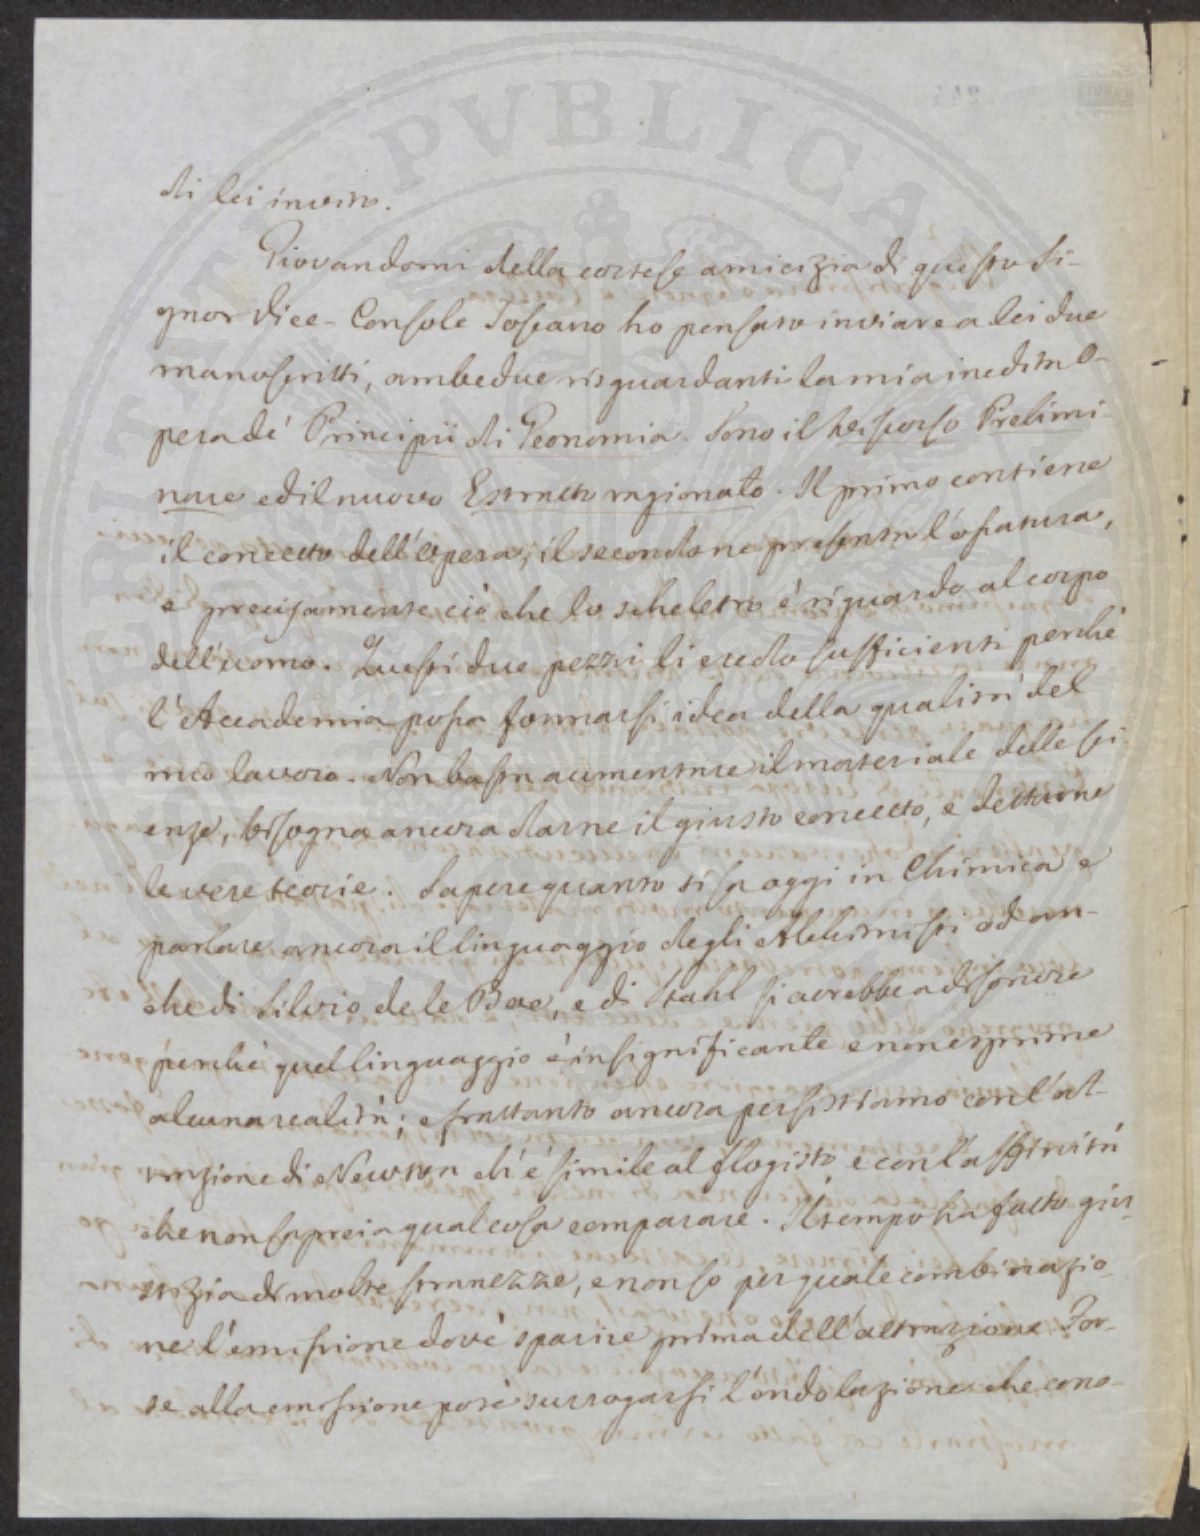 PVBLICAE
di lei invito.
Giovandomi della cortese amicizia di questo Si-
gnor Vice-Console Toscano ho pensato inviare a lei due
manoscritti, ambedue risguardanti la mia inedita O-
pera de' Principii di Geonomia. Sono il Discorso Prelimi-
nare ed il nuovo Estratto ragionato. Il primo contiene
il concetto dell'Opera; il secondo ne presenta l'ossatura,
e precisamente ciò che lo scheletro è riguardo al corpo
dell'uomo. Questi due pezzi li credo sufficienti perché
l'Accademia possa formarsi idea della qualità del
mio lavoro. Non basta aumentare il materiale delle sci-
enze, bisogna ancora darne il giusto concetto, e dettarne
le vere teorie. Sapere quanto si sa oggi in Chimica e
parlare ancora il linguaggio degli Alchimisti od an-
che di Silvio de le Boe, e di Stahl si avrebbe a disonore
perché quel linguaggio è insignificante e non esprime
alcuna realità; e frattanto ancora persistiamo con l'at-
trazione di Newton ch'è simile al flogisto e con l'affinità
che non saprei a qual cosa comparare. Il tempo ha fatto giu-
stizia di molte stranezze, e non so per quale combinazio-
ne l'emissione dovè sparire prima dell'attrazione. For-
se alla emissione potè surrogarsi l'ondolazione che cono-